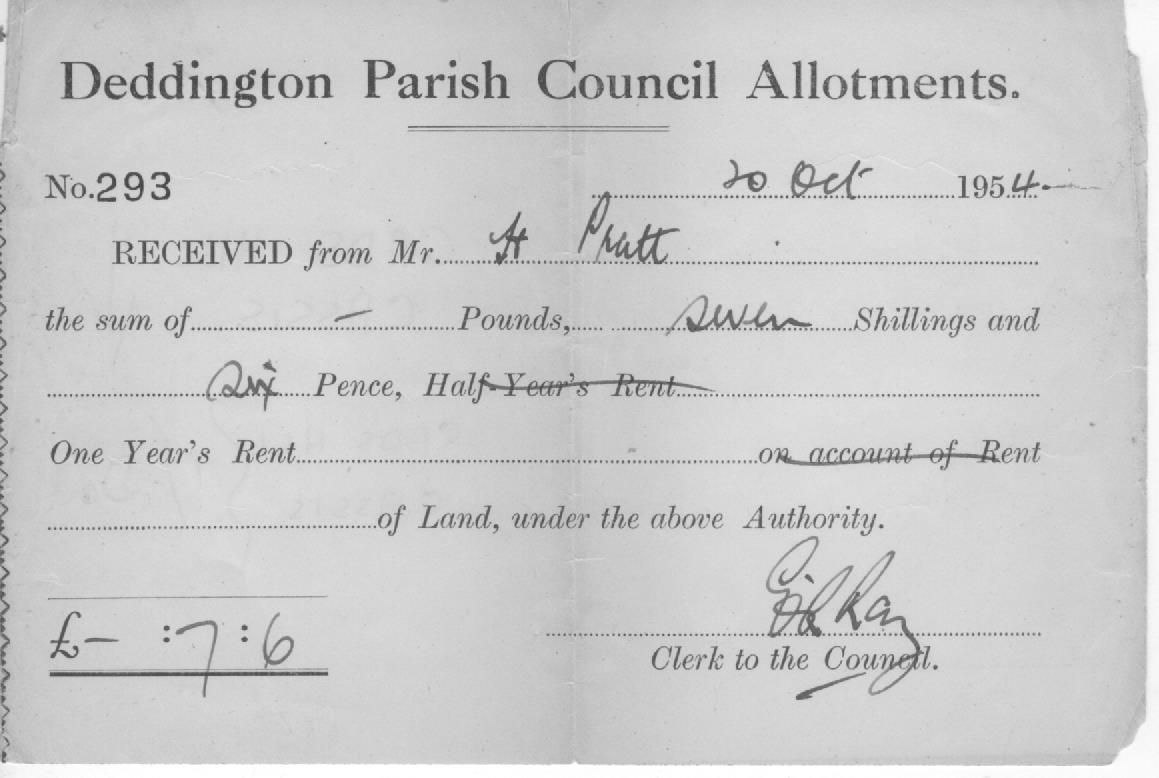 Deddington Parish Council Allotments.
No. 293 20 Oct 1954
RECEIVED from Mr. H Pratt
the sum of — Pounds, seven Shillings and
Six Pence, Half-Year's Rent
One Year's Rent on account of Rent
of Land, under the above Authority.
£ — : 7 : 6
Clerk to the Council.